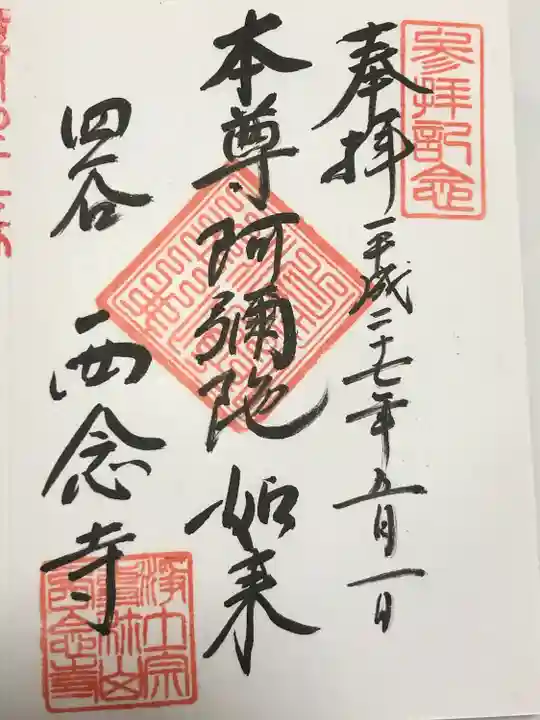 参拝記念
奉拝 平成二十七年五月一日
本尊阿彌陀如来
四谷 西念寺
浄土宗
雲林山
西念寺